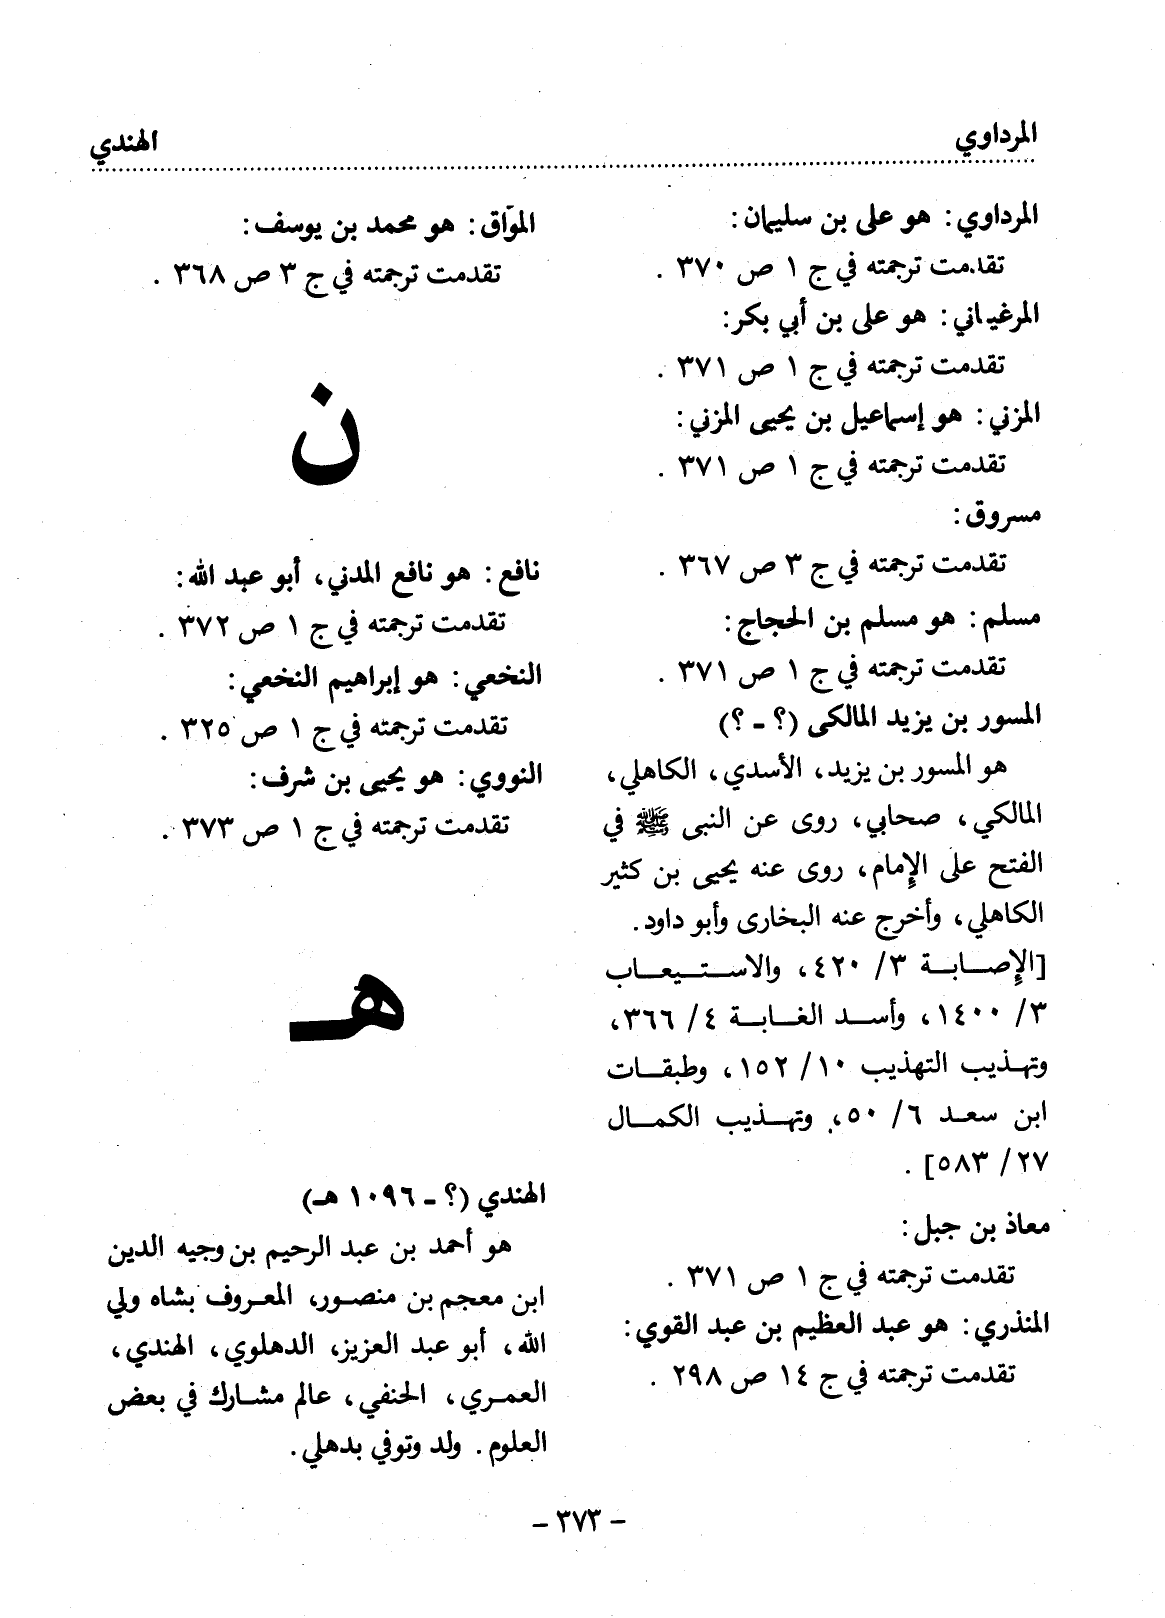 المرداوي
الهندي
المرداوي: هو على بن سليمان:
تقدمت ترجمته في ج ١ ص ٣٧٠ .
المرغيناني: هو على بن أبي بكر:
تقدمت ترجمته في ج ١ ص ٣٧١ .
المزني: هو إسماعيل بن يحيى المزني:
تقدمت ترجمته في ج ١ ص ٣٧١ .
مسروق:
تقدمت ترجمته في ج ٣ ص ٣٦٧ .
مسلم: هو مسلم بن الحجاج:
تقدمت ترجمته في ج ١ ص ٣٧١ .
المسور بن يزيد المالكى (؟ ـ ؟)
هو المسور بن يزيد، الأسدي، الكاهلي،
المالكي، صحابي، روى عن النبى ﷺ في
الفتح على الإمام، روى عنه يحيى بن كثير
الكاهلي، وأخرج عنه البخارى وأبو داود.
[الإصابة ٣/ ٤٢٠، والاستيعاب
٣/ ١٤٠٠، وأسد الغابة ٤/ ٣٦٦،
وتهذيب التهذيب ١٠/ ١٥٢، وطبقات
ابن سعد ٦/ ٥٠، وتهذيب الكمال
٢٧/ ٥٨٣] .
معاذ بن جبل:
تقدمت ترجمته في ج ١ ص ٣٧١ .
المنذري: هو عبد العظيم بن عبد القوي:
تقدمت ترجمته في ج ١٤ ص ٢٩٨ .
الموّاق: هو محمد بن يوسف:
تقدمت ترجمته في ج ٣ ص ٣٦٨ .
ن
نافع: هو نافع المدني، أبو عبد الله:
تقدمت ترجمته في ج ١ ص ٣٧٢ .
النخعي: هو إبراهيم النخعي:
تقدمت ترجمته في ج ١ ص ٣٢٥ .
النووي: هو يحيى بن شرف:
تقدمت ترجمته في ج ١ ص ٣٧٣ .
هـ
الهندي (؟ ـ ١٠٩٦ هـ)
هو أحمد بن عبد الرحيم بن وجيه الدين
ابن معجم بن منصور، المعروف بشاه ولي
الله، أبو عبد العزيز، الدهلوي، الهندي،
العمري، الحنفي، عالم مشارك في بعض
العلوم. ولد وتوفي بدهلي.
- ٣٧٣ -